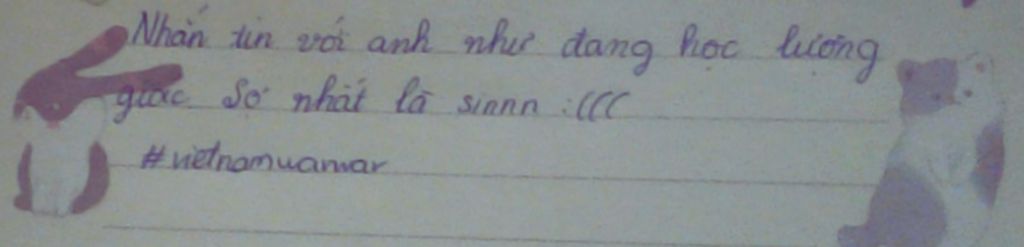 Nhắn tin với anh như đang học lượng
giác. Sợ nhất là sinnn :(((
#vietnamuanwar